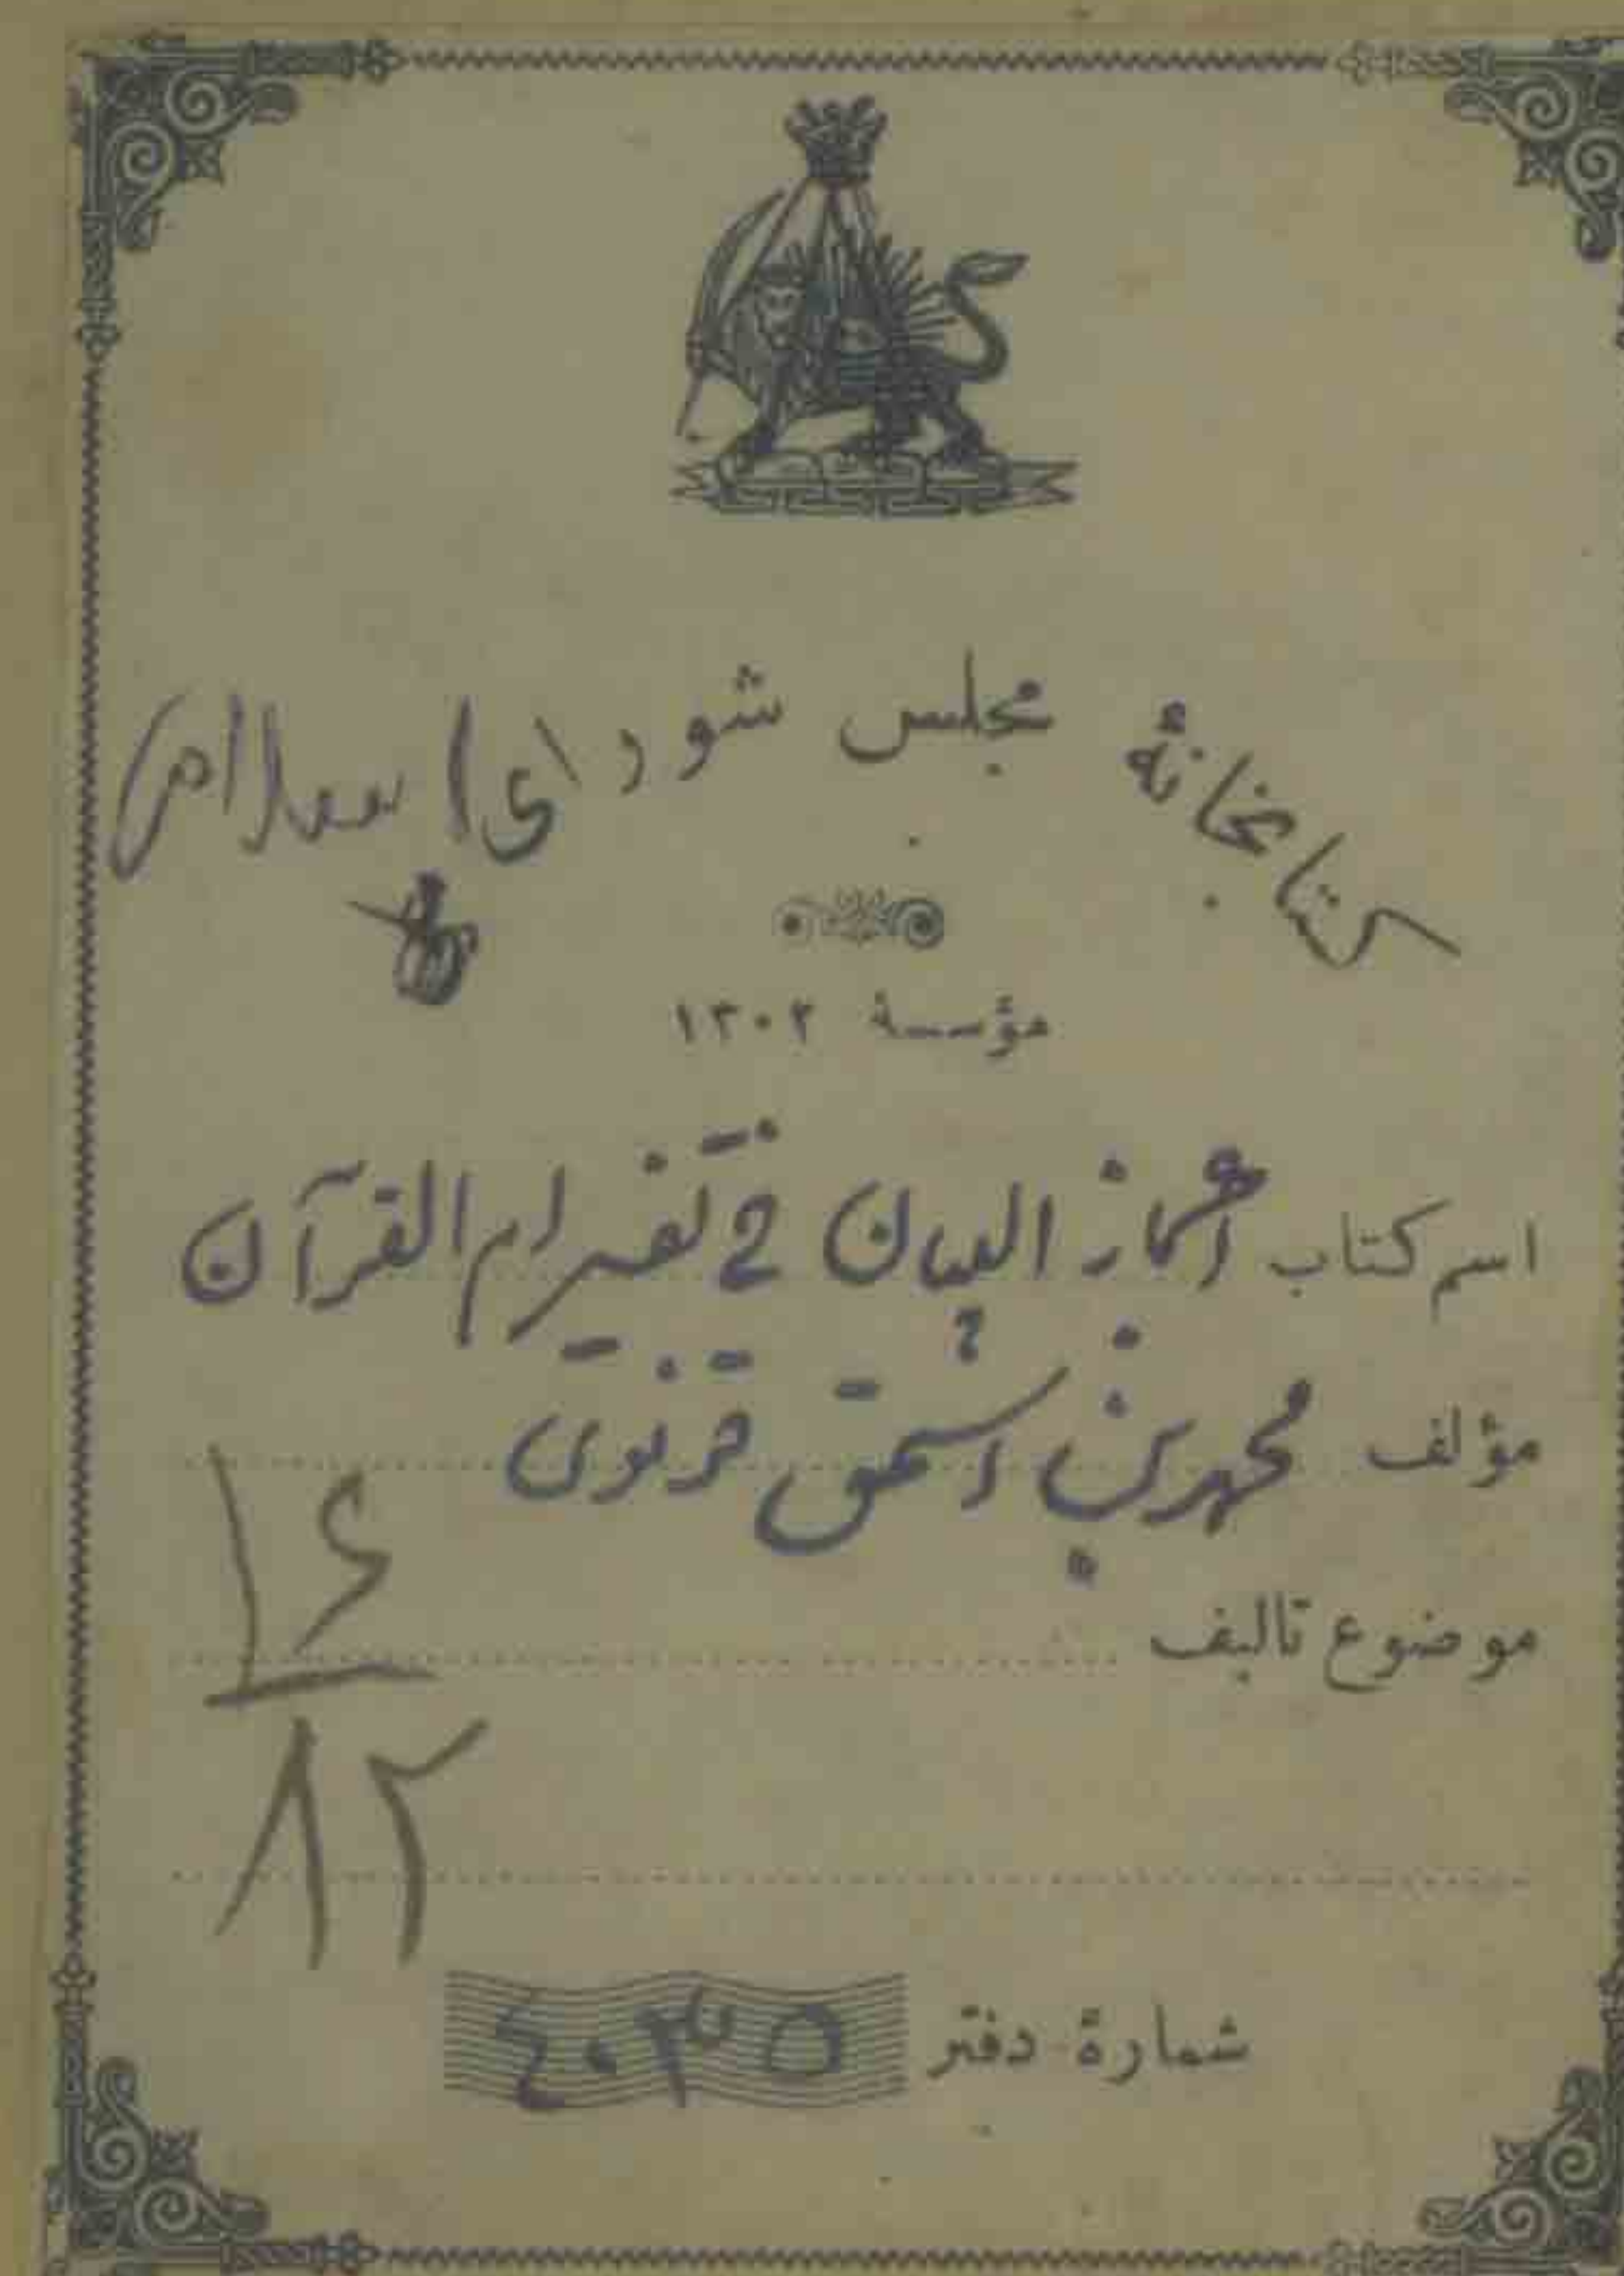 کتابخانهٔ مجلس شورای اسلامی
مؤسسهٔ ۱۳۰۲
اسم کتاب اعجاز البیان فی تفسیر ام القرآن
مؤلف محمد بن اسحق قونوی
موضوع تالیف
۱٤
۸۲
شمارهٔ دفتر ٤۰۳۵